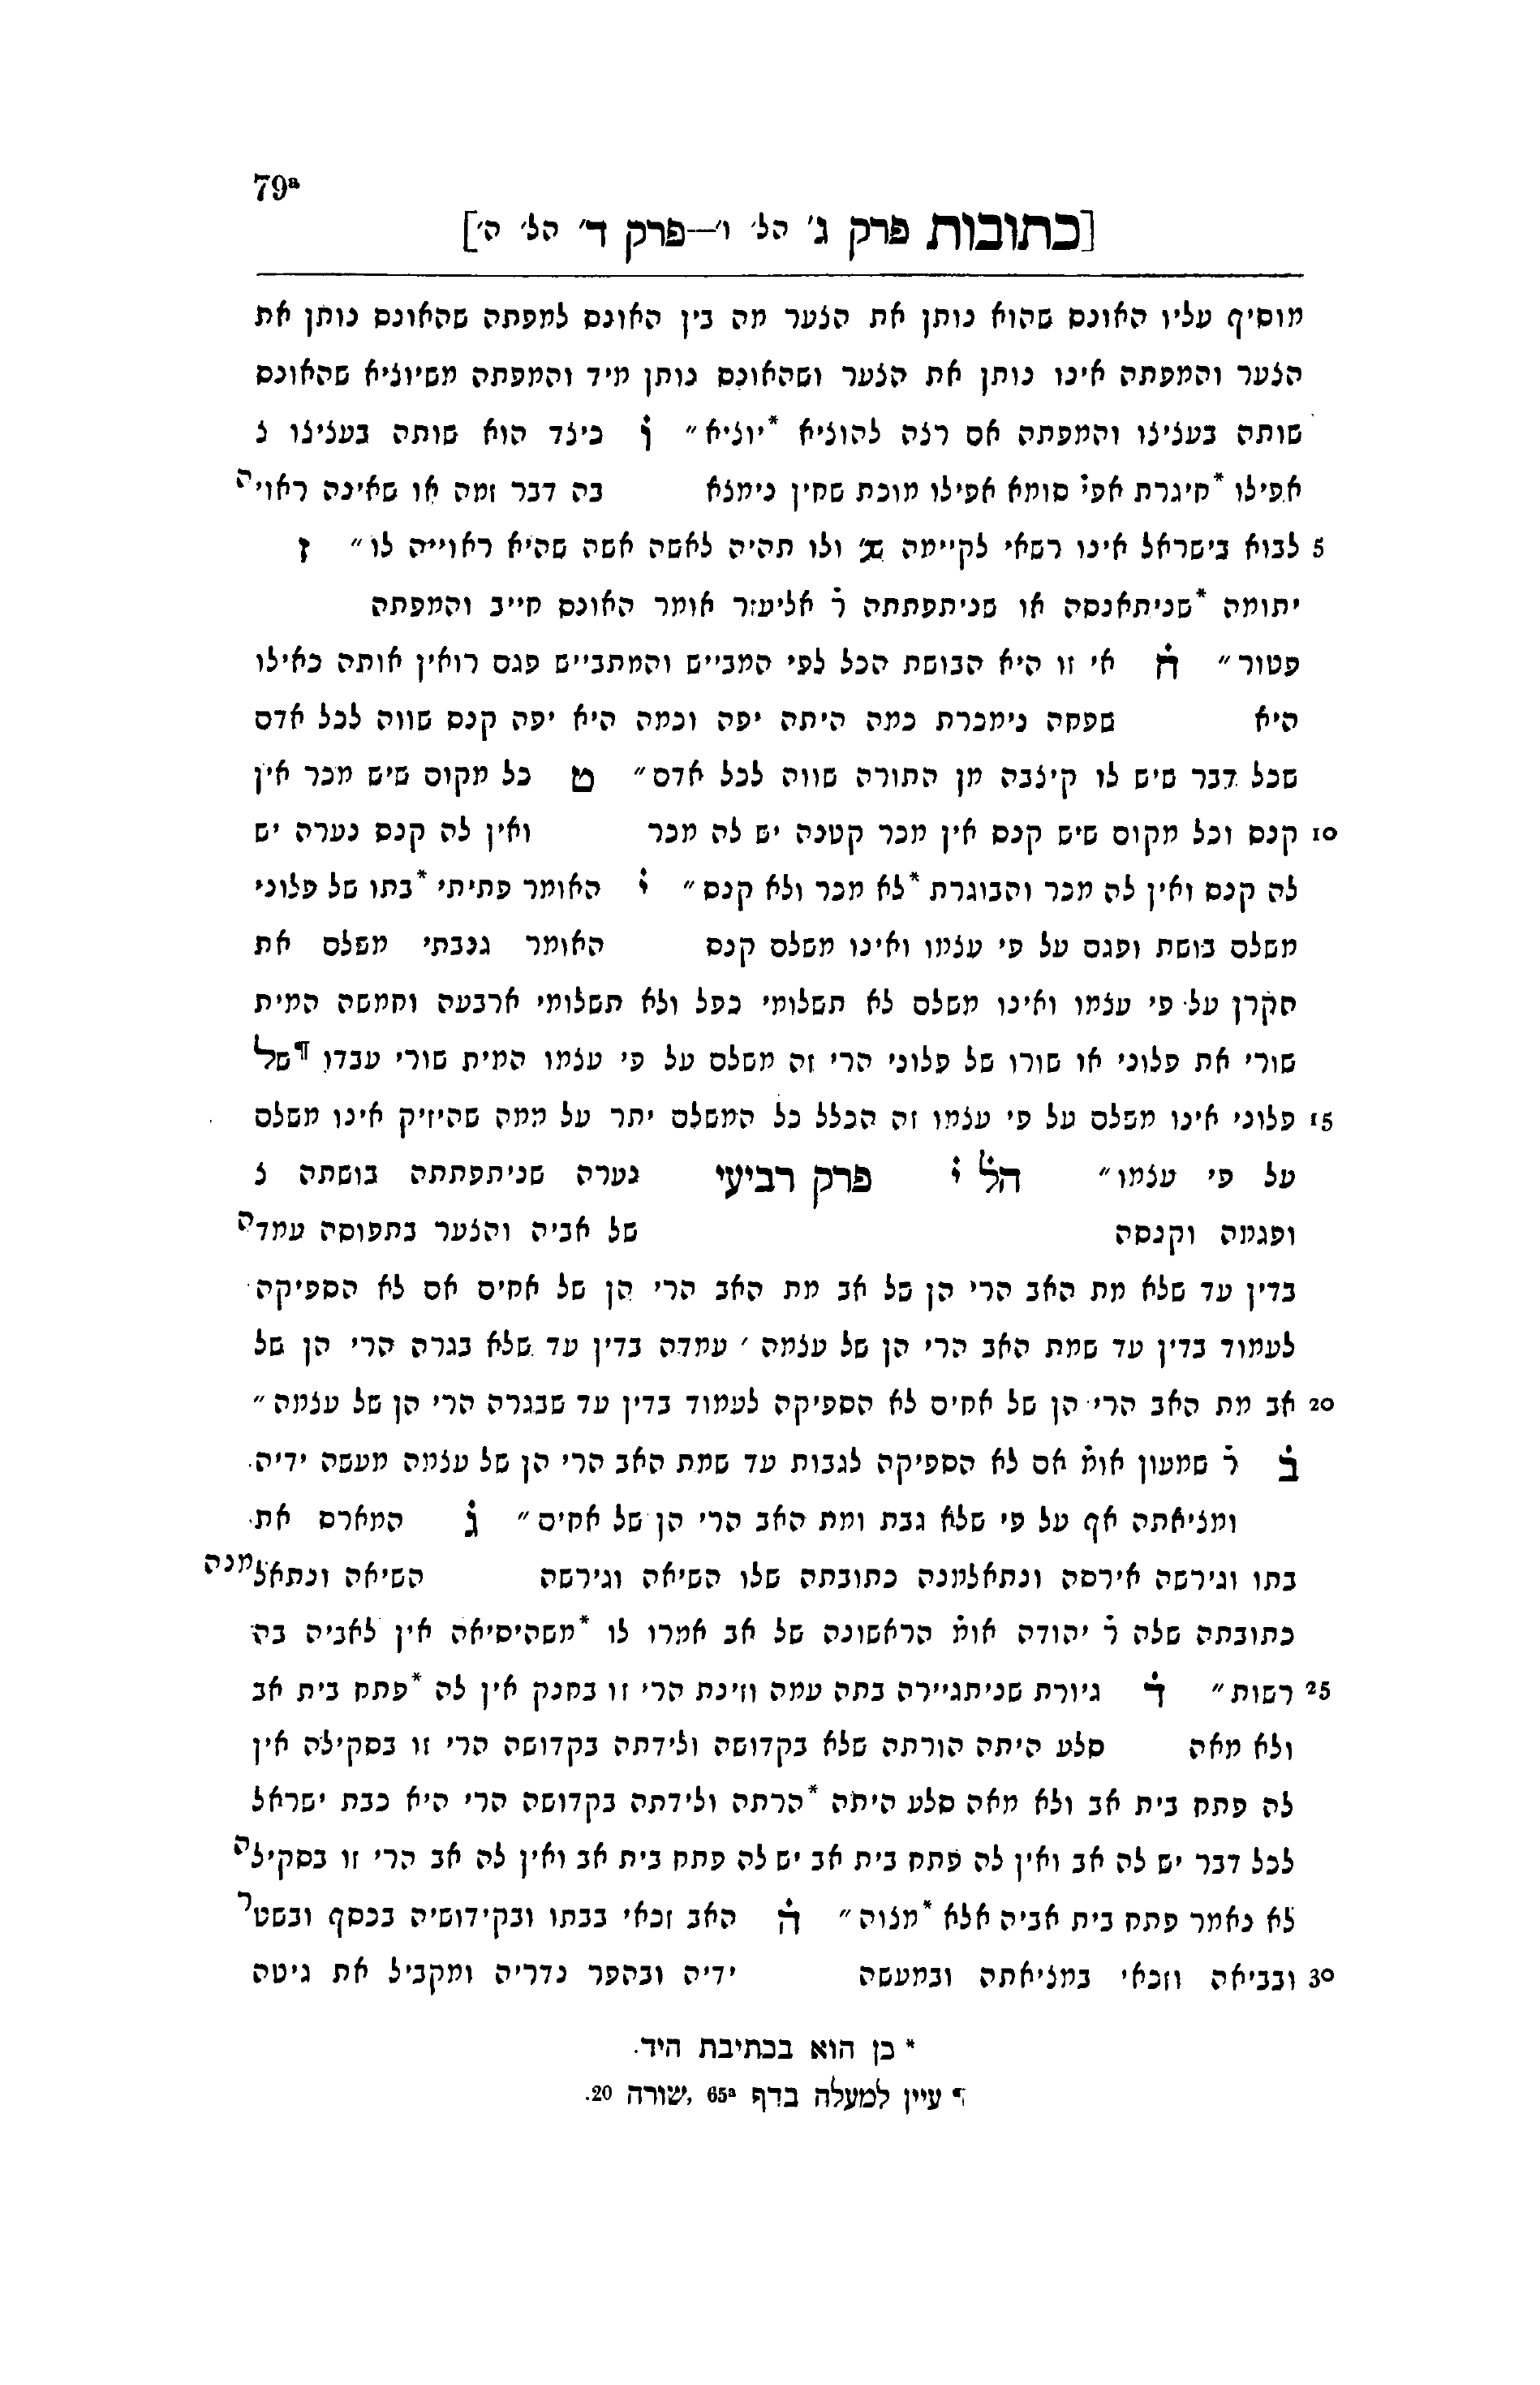 79ª
[כתובות פרק ג׳ הל׳ ו׳—פרק ד׳ הל׳ ה׳]
מוסיף עליו האונס שהוא נותן את הצער מה בין האונס למפתה שהאונס נותן את
הצער והמפתה אינו נותן את הצער ושהאונס נותן מיד והמפתה משיוציא שהאונס
שותה בעציצו והמפתה אם רצה להוציא *יוציא״ ו̇ כיצד הוא שותה בעציצו צ
אפילו *חיגרת אפי̇ סומא אפילו מוכת שחין נימצא בה דבר זמה או שאינה ראויה
5 לבוא בישראל אינו רשאי לקיימה שנ̇ ולו תהיה לאשה אשה שהיא ראוייה לו״ ז̇
יתומה *שניתאנסה או שניתפתתה ר̇ אליעזר אומר האונס חייב והמפתה
פטור״ ח̇ אי זו היא הבושת הכל לפי המבייש והמתבייש פגם רואין אותה כאילו
היא שפחה נימכרת כמה היתה יפה וכמה היא יפה קנס שווה לכל אדם
שכל דבר שיש לו קיצבה מן התורה שווה לכל אדם״ ט̇ כל מקום שיש מכר אין
10 קנס וכל מקום שיש קנס אין מכר קטנה יש לה מכר ואין לה קנס נערה יש
לה קנס ואין לה מכר והבוגרת *לא מכר ולא קנס״ י̇ האומר פתיתי *בתו של פלוני
משלם בושת ופגם על פי עצמו ואינו משלם קנס האומר גנבתי משלם את
הקרן על פי עצמו ואינו משלם לא תשלומי כפל ולא תשלומי ארבעה וחמשה המית
שורי את פלוני או שורו של פלוני הרי זה משלם על פי עצמו המית שורי עבדו ¶של
15 פלוני אינו משלם על פי עצמו זה הכלל כל המשלם יתר על ממה שהיזיק אינו משלם
על פי עצמו״ הל̇ י̇ פרק רביעי נערה שניתפתתה בושתה צ
ופגמה וקנסה של אביה והצער בתפוסה עמדה
בדין עד שלא מת האב הרי הן של אב מת האב הרי הן של אחים אם לא הספיקה
לעמוד בדין עד שמת האב הרי הן של עצמה ׳ עמדה בדין עד שלא בגרה הרי הן של
20 אב מת האב הרי הן של אחים לא הספיקה לעמוד בדין עד שבגרה הרי הן של עצמה״
ב̇ ר̇ שמעון אומ̇ אם לא הספיקה לגבות עד שמת האב הרי הן של עצמה מעשה ידיה
ומציאתה אף על פי שלא גבת ומת האב הרי הן של אחים״ ג̇ המארס את
בתו וגירשה אירסה ונתאלמנה כתובתה שלו השיאה וגירשה השיאה ונתאלמנה
כתובתה שלה ר̇ יהודה אומ̇ הראשונה של אב אמרו לו *משהיסיאה אין לאביה בה
25 רשות״ ד̇ גיורת שניתגיירה בתה עמה וזינת הרי זו בחנק אין לה *פתח בית אב
ולא מאה סלע היתה הורתה שלא בקדושה ולידתה בקדושה הרי זו בסקילה אין
לה פתח בית אב ולא מאה סלע היתה *הרתה ולידתה בקדושה הרי היא כבת ישראל
לכל דבר יש לה אב ואין לה פתח בית אב יש לה פתח בית אב ואין לה אב הרי זו בסקילה
לא נאמר פתח בית אביה אלא *מצוה״ ה̇ האב זכאי בבתו ובקידושיה בכסף ובשטר
30 ובביאה וזכאי במציאתה ובמעשה ידיה ובהפר נדריה ומקביל את גיטה
* כן הוא בכתיבת היד.
¶ עיין למעלה בדף 65ª, שורה 20.